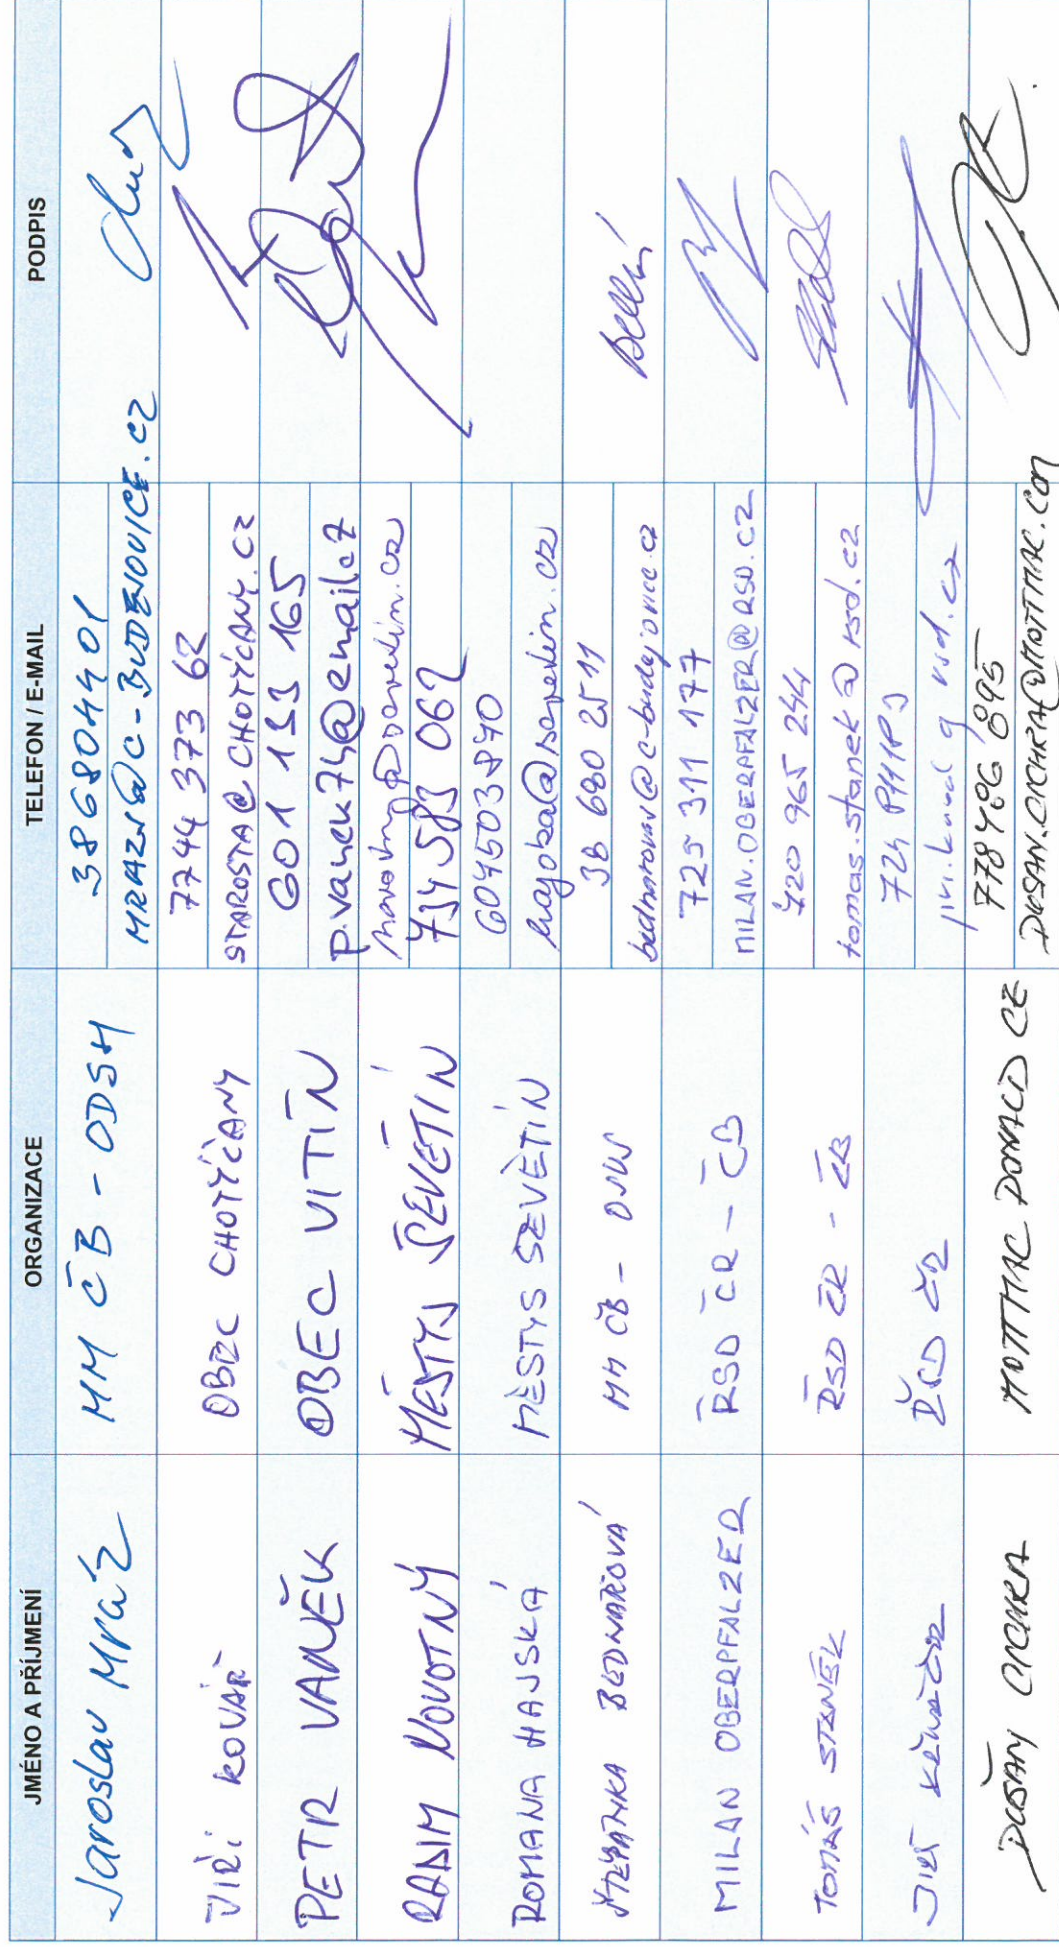 JMÉNO A PŘÍJMENÍ ORGANIZACE TELEFON / E-MAIL PODPIS
Jaroslav Mráz MM ČB - ODSH 386804401
MRAZJ@C-BUDEJOVICE.CZ
JIŘÍ KOVÁŘ OBEC CHOTÝČANY 7744 373 62
STAROSTA@CHOTYCANY.CZ
PETR VANĚK OBEC VITÍN 601 133 165
p.vanek74@email.cz
RADIM NOVOTNÝ MĚSTYS ŠEVĚTÍN novotny@sevetin.cz
734 583 062
ROMANA HAJSKÁ MĚSTYS ŠEVĚTÍN 604503840
hajska@sevetin.cz
ŠTĚPÁNKA BEDNÁŘOVÁ MM ČB - 38 680 2511
bednarovas@c-budejovice.cz
MILAN OBERPFALZER ŘSD ČR - ČB 725 311 177
MILAN.OBERPFALZER@RSD.CZ
TOMÁŠ STANĚK ŘSD ČR - ČB 720 965 244
tomas.stanek@rsd.cz
JIŘÍ ŘSD ČR 724
DUŠAN CICHRA MOTTMAC DONALD CZ 778 496 895
DUSAN.CICHRA@MOTTMAC.COM